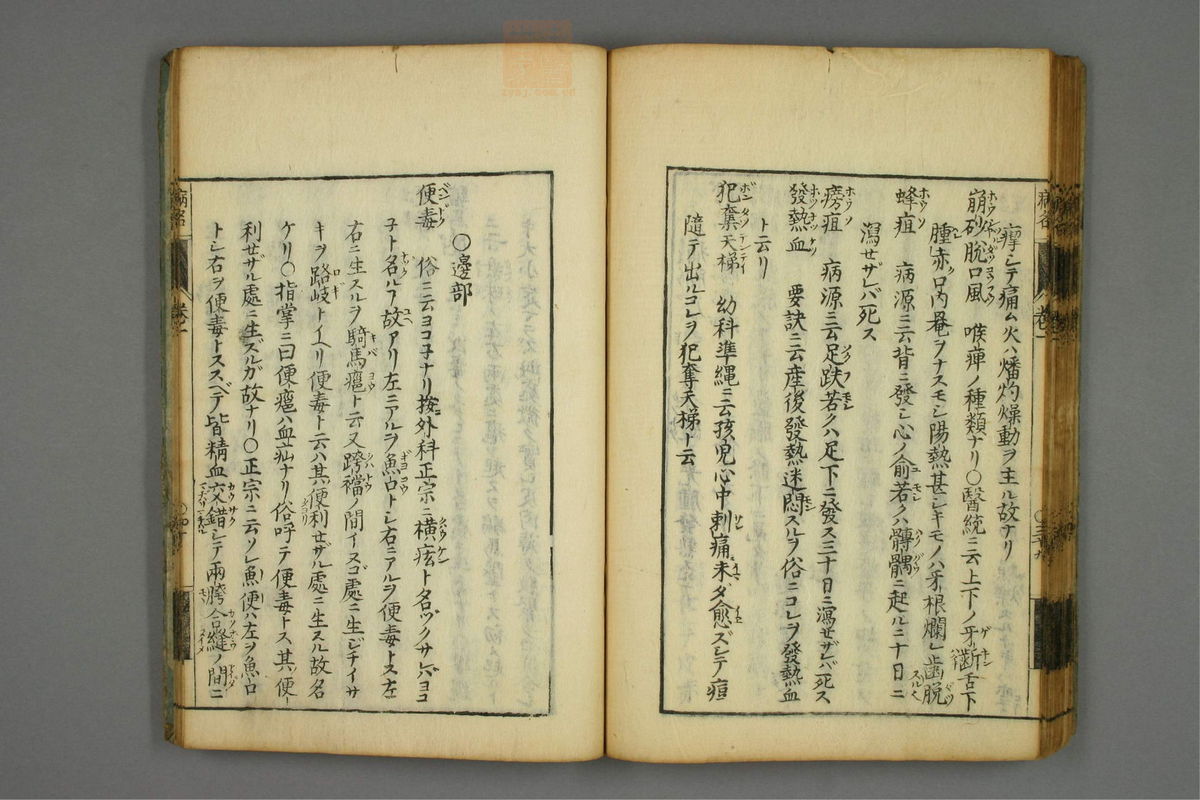 摩シテ痛ム火ハ燔灼燥動ヲ主ル故ナリ
崩砂脱口風 喉痺ノ種類ナリ○醫統ニ云上下ノ牙齗舌下
腫赤口内菴ヲナスモシ陽熱甚シキモノハ牙根爛レ歯脱
蜂疽 病源ニ云背ニ發シ心ノ俞若クハ髆髃ニ起ル二十日ニ
瀉せザレバ死ス
㾮疽 病源ニ云足趺若クハ足下ニ發ス三十日ニ瀉せザレバ死ス
發熱血 要訣ニ云産後發熱迷悶スルヲ俗ニコレヲ發熱血
ト云リ
犯奪天梯 幼科準繩ニ云孩児心中刺痛未ダ愈ズシテ痘
隨テ出ルコレヲ犯奪天梯ト云
病名
卷一
○邊部
便毒 俗ニ云ヨコ子ナリ按外科正宗ニ横痃ト名ヅクサレバヨコ
子ト名ルフ故アリ左ニアルヲ魚口トシ右ニアルヲ便毒トス左
右ニ生スルヲ騎馬癰ト云又跨襠ノ間イスゴ處ニ生ジチイサ
キヲ路岐トイヘリ便毒ト云ハ其便利せザル處ニ生スル故名
ケリ○指掌ニ曰便癰ハ血疝ナリ俗呼テ便毒トス其便
利せザル處ニ生ズルガ故ナリ○正宗ニ云ソレ魚便ハ左ヲ魚口
トシ右ヲ便毒トススベテ皆精血交錯シテ兩胯合縫ノ間ニ
病名
卷一